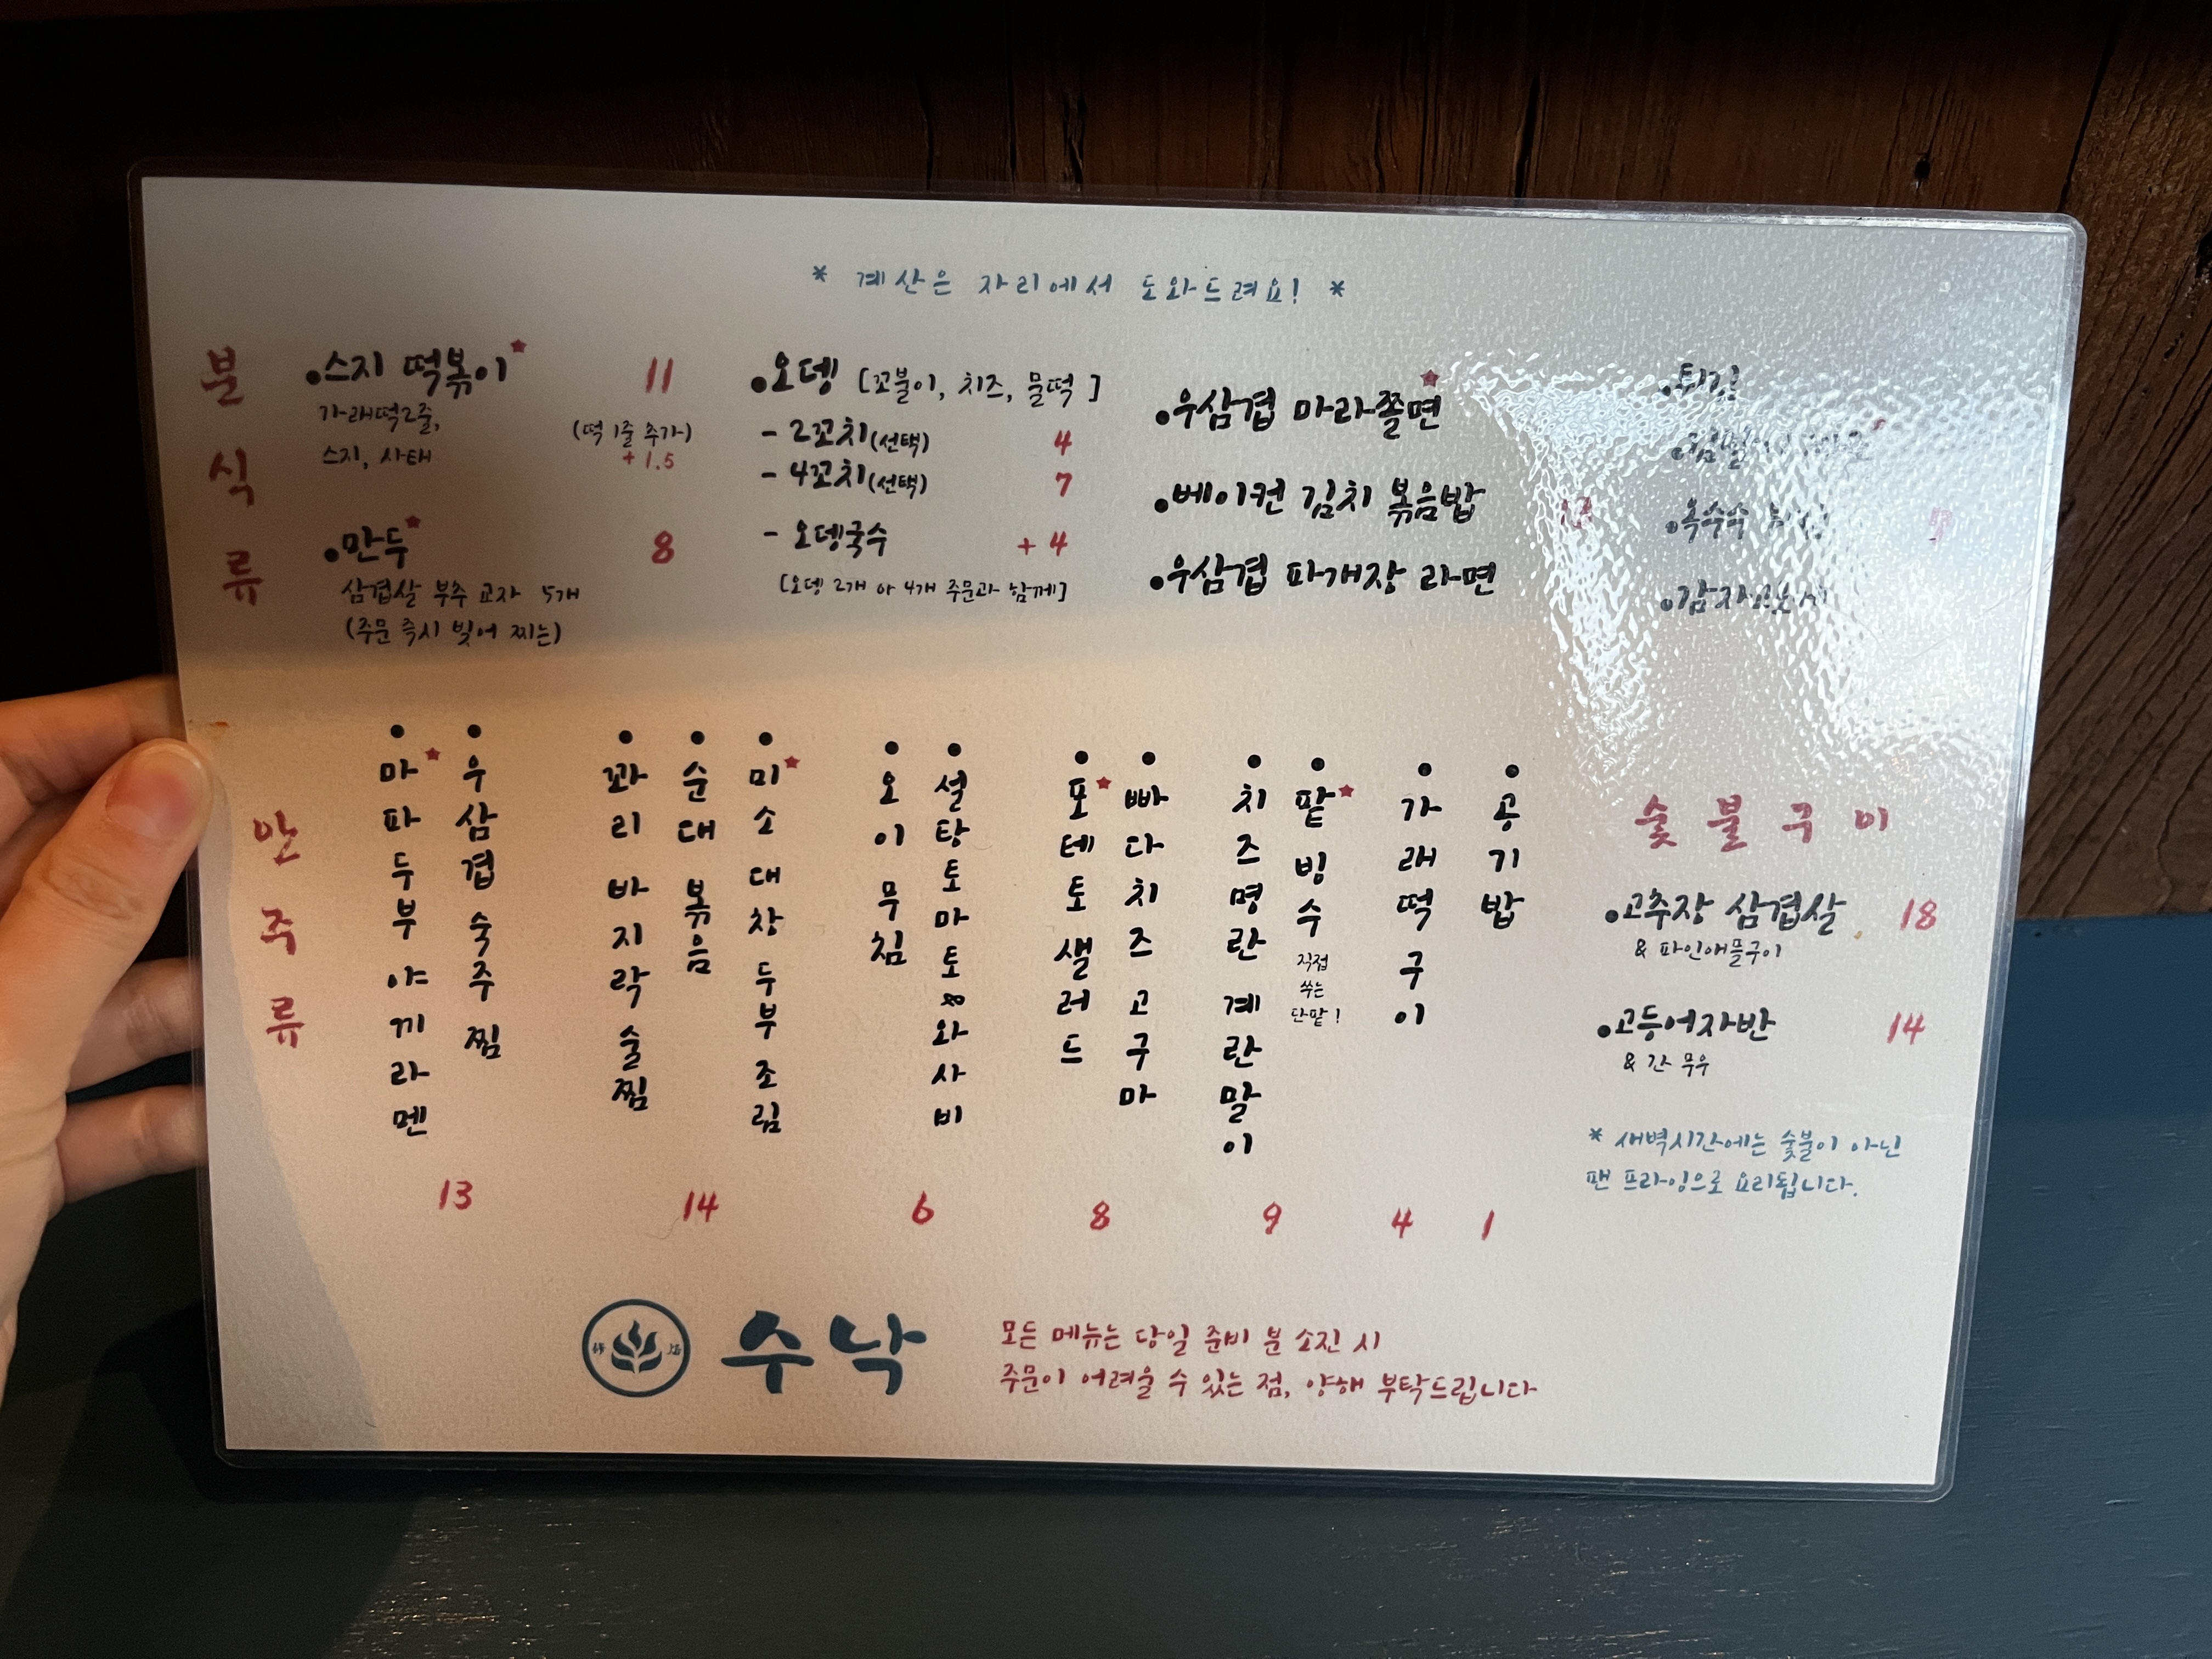 * 계산은 자리에서 도와드려요! *
분식류
스지 떡볶이 11
가래떡2줄,
스지, 사태
(떡 1줄 추가)
+ 1.5
만두 8
삼겹살 부추 교자 5개
(주문 즉시 빚어 찌는)
오뎅 [꼬불이, 치즈, 물떡]
- 2꼬치(선택) 4
- 4꼬치(선택) 7
- 오뎅국수 + 4
[오뎅 2개 or 4개 주문과 함께]
우삼겹 마라쫄면
베이컨 김치 볶음밥
우삼겹 파개장 라면
튀김
옥수수
안주류
마파두부야끼라멘
우삼겹숙주찜
13
꽈리 바지락 술찜
순대 볶음
미소 대창 두부조림
14
오이 무침
설탕토마토&와사비
6
포테토 샐러드
빠다치즈고구마
8
치즈명란 계란말이
팥빙수
직접
쑤는
단팥!
9
가래떡 구이
4
공기밥
1
숯불구이
고추장 삼겹살 18
& 파인애플구이
고등어자반 14
& 간 무우
* 새벽시간에는 숯불이 아닌
팬 프라잉으로 요리됩니다.
수낙
모든 메뉴는 당일 준비 분 소진 시
주문이 어려울 수 있는 점, 양해 부탁드립니다